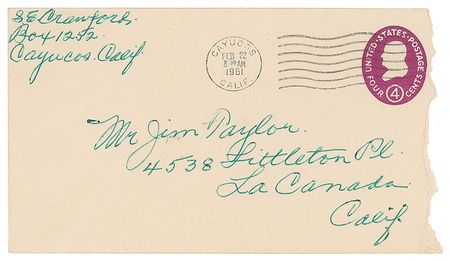 S.E. Crawford
Box 1252
Cayucos. Calif.
CAYUCOS
FEB 22
8 30 AM
1961
CALIF.
UNITED·STATES·POSTAGE
FOUR 4 CENTS
Mr Jim Taylor.
4538 Littleton Pl.
La Canada.
Calif.